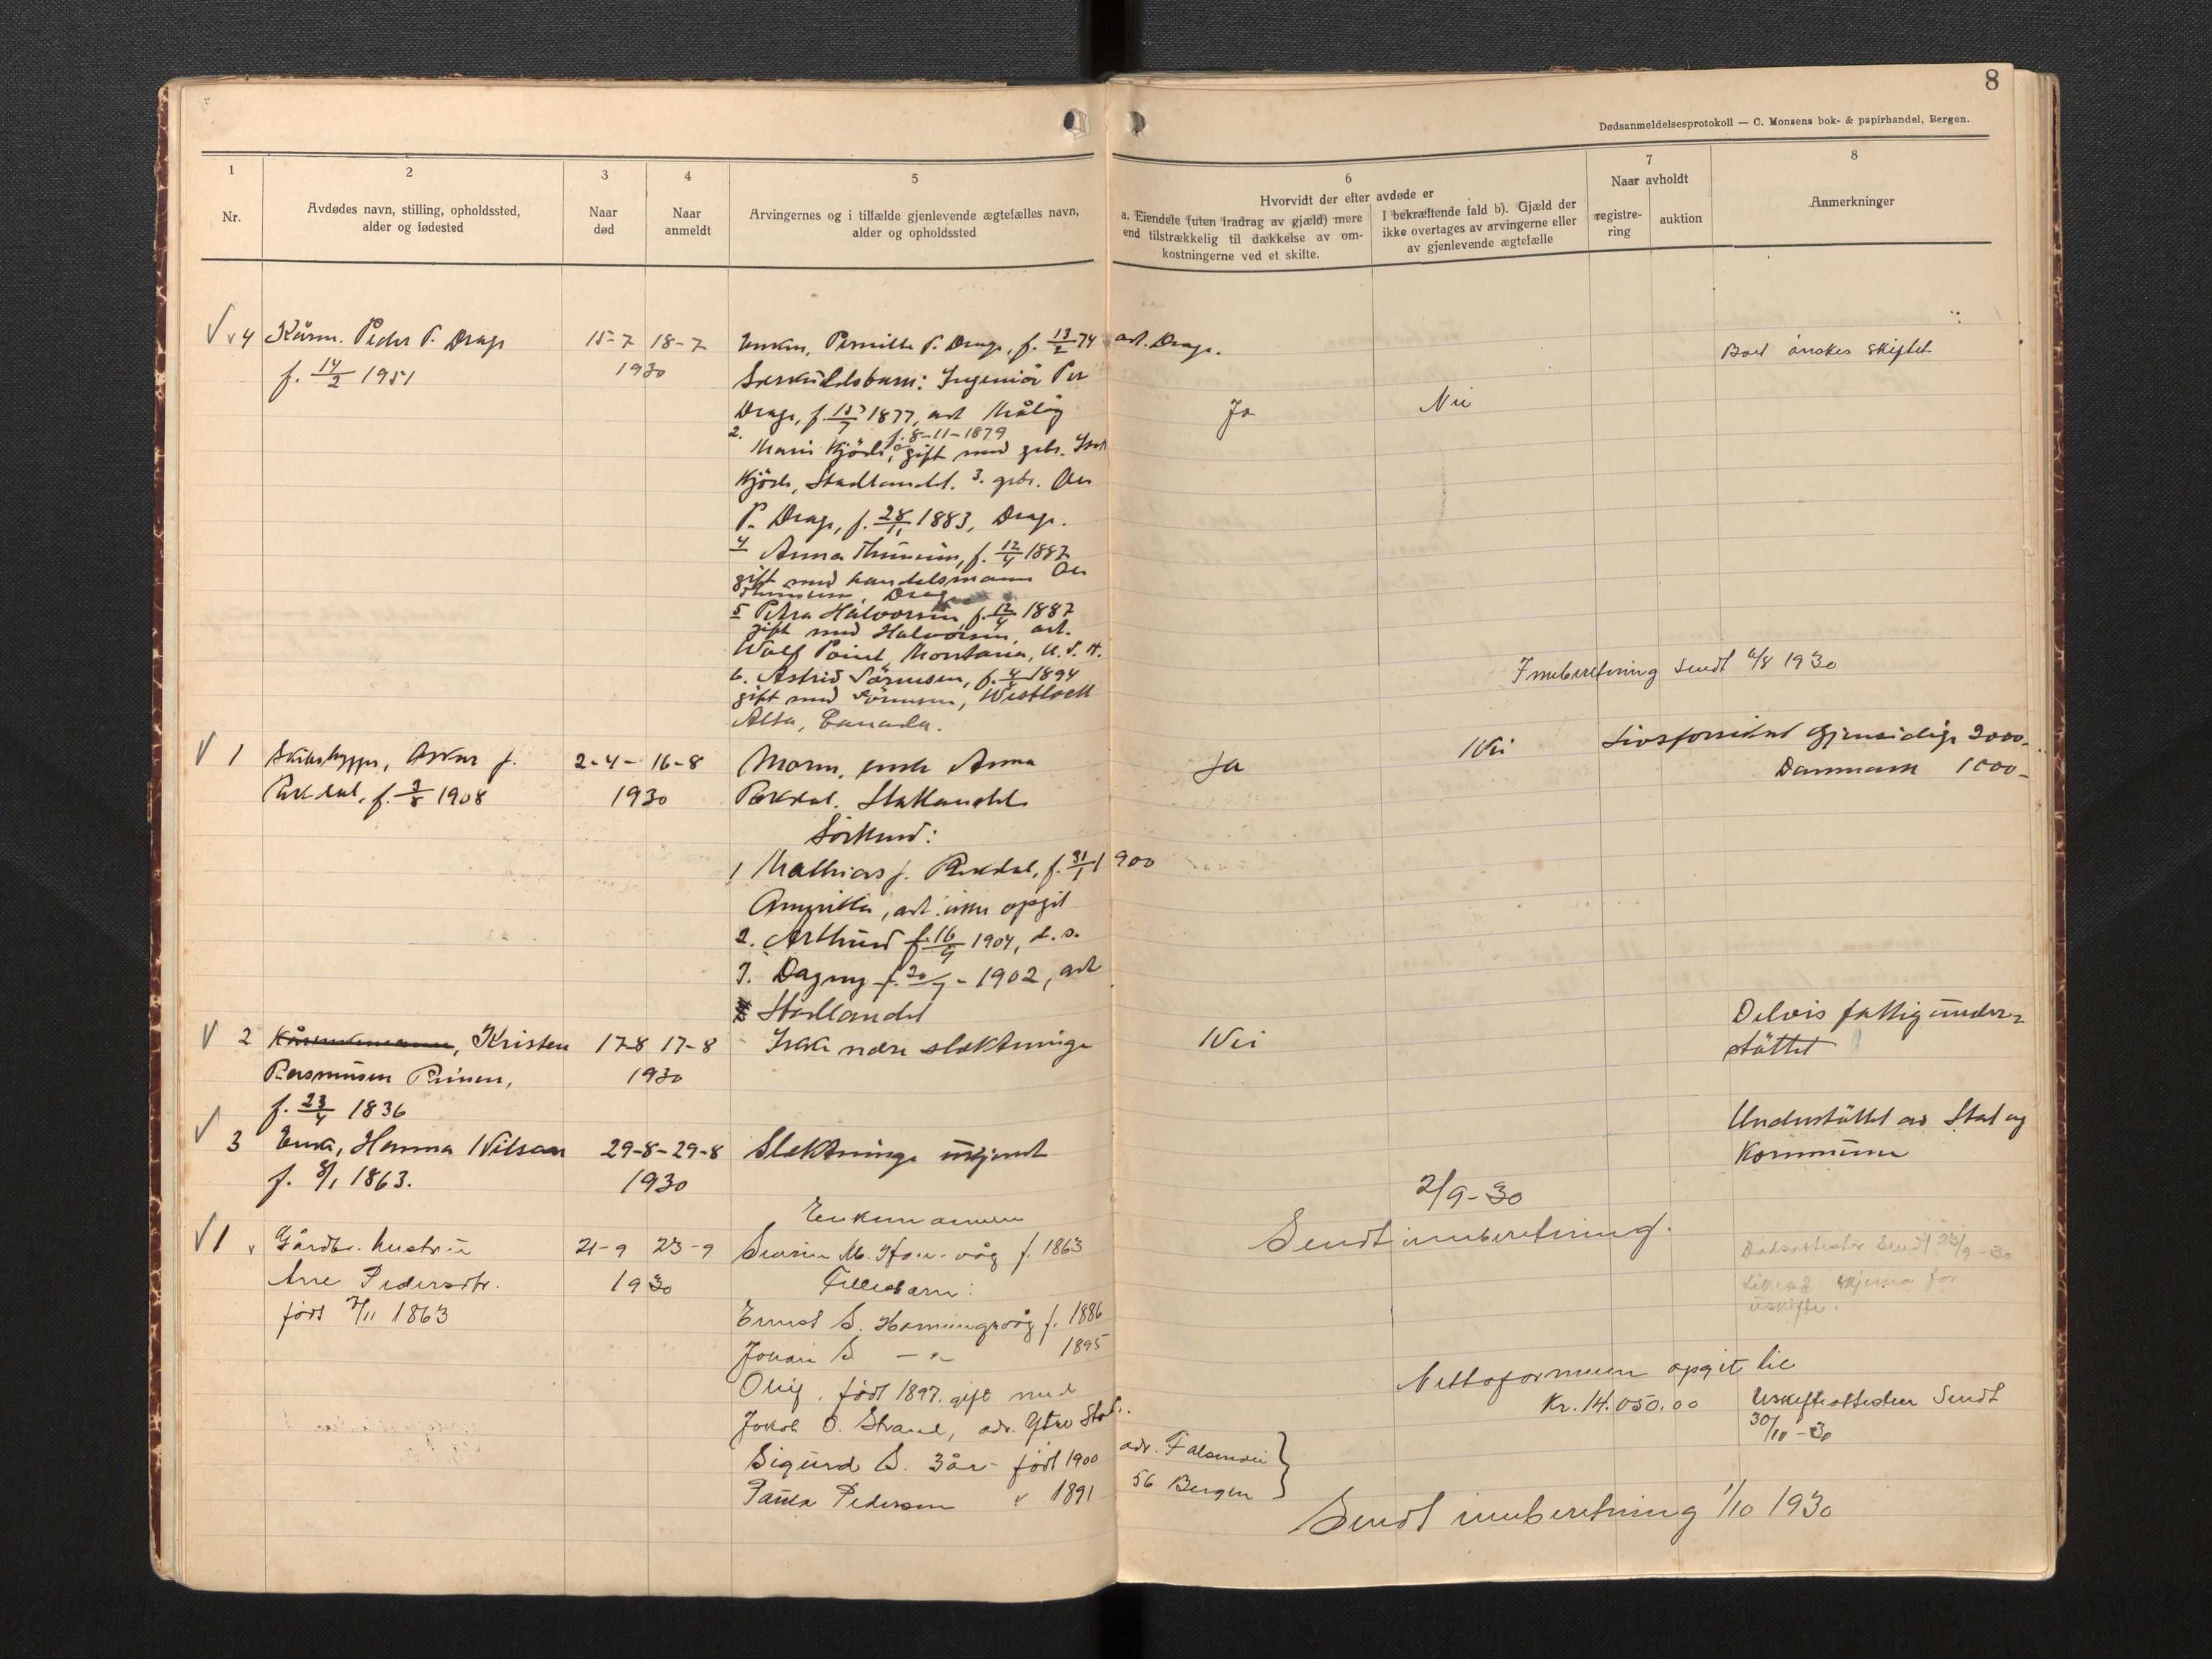 8
Dødsanmeldelsesprotokoll — C. Monsens bok- & papirhandel, Bergen.
1
Nr.
2
Avdødes navn, stilling, opholdssted,
alder og fødested
3
Naar
død
4
Naar
anmeldt
5
Arvingernes og i tilfælde gjenlevende ægtefælles navn,
alder og opholdssted
6
Hvorvidt der efter avdøde er
a. Eiendele (uten fradrag av gjæld) mere
end tilstrækkelig til dækkelse av om-
kostningerne ved et skifte.
I bekræftende fald b). Gjæld der
ikke overtages av arvingerne eller
av gjenlevende ægtefælle
7
Naar avholdt
registre-
ring
auktion
8
Anmerkninger
4 Kårm. Peder P. Drage
f. 14/2 1951
15-7 18-7
1930
Enken, Pernille P. Drage, f. 13/2 74 adr. Drage.
Særkuldsbarn: Ingeniör Per
Drage, f. 1877, adr Måløy
2. f. 8-11-1879
Marie Kjöde, gift med grbr.
Kjöde, Stadlandet. 3. grbr. Ole
P. Drage, f. 28/11 1883, Drage.
4 Anna Thunem, f. 12/4 1887
gift med handelsmann Ole
Thunem, Drage
5 Petra Halvorsen, f. 12/4 1887
gift med Halvorsen, adr.
Wolf Point, Montana, U.S.A.
6. Astrid Sörensen, f. 1894
gift med Sörensen, Westlock
Alta, Canada.
Ja
Nei
Boet önskes skiftet
Inneberetning sendt 6/8 1930
1 Skibsbygger, Oskar J.
f. 1908
2-4- 16-8
1930
Moren, enke Anna
Stadlandet
Sösken:
1 Mathias J. f. 31/1 1900
Amerika, adr. ikke opgit
2. Arthur f. 16/9 1904, d.s.
3. Dagny f. 20/7 - 1902, adr
Stadlandet
Ja
Nei
Livsforsikret Gjensidige 2000-
Danmark 1000-
2 Kristen
Rasmusen
f. 23/4 1836
17-8 17-8
1930
Ikke nære slektninge
Nei
Delvis fattigunder-
stöttet
3 Enke, Hanna Nilsen
f. 8/1 1863.
29-8-29-8
1930
Slektninge ukjent
Understöttet av Stat og
Kommune
2/9-30
Sendt inneberetning.
1 Gårdbr. hustru
Ane Pedersdtr.
født 7/11 1863
21-9 23-9
1930
Enkemannen
Severin M. f. 1863
Fellesbarn:
Ernst S. Hamningvåg f. 1886
Johan S. — " — 1895
Oluf. født 1897. gift med
Jakob O. Strand, adr. Ytre Stat.
Sigurd S. født 1900
Paula Pedersen " 1891
adr.
56 Bergen
Dødsattester sendt 23/9-30
Likeså skjema for
uskifte.
Nettoformuen opgit til
Kr. 14.050,00
Uskifteattesten Sendt
30/10-30
Sendt inneberetning 1/10 1930